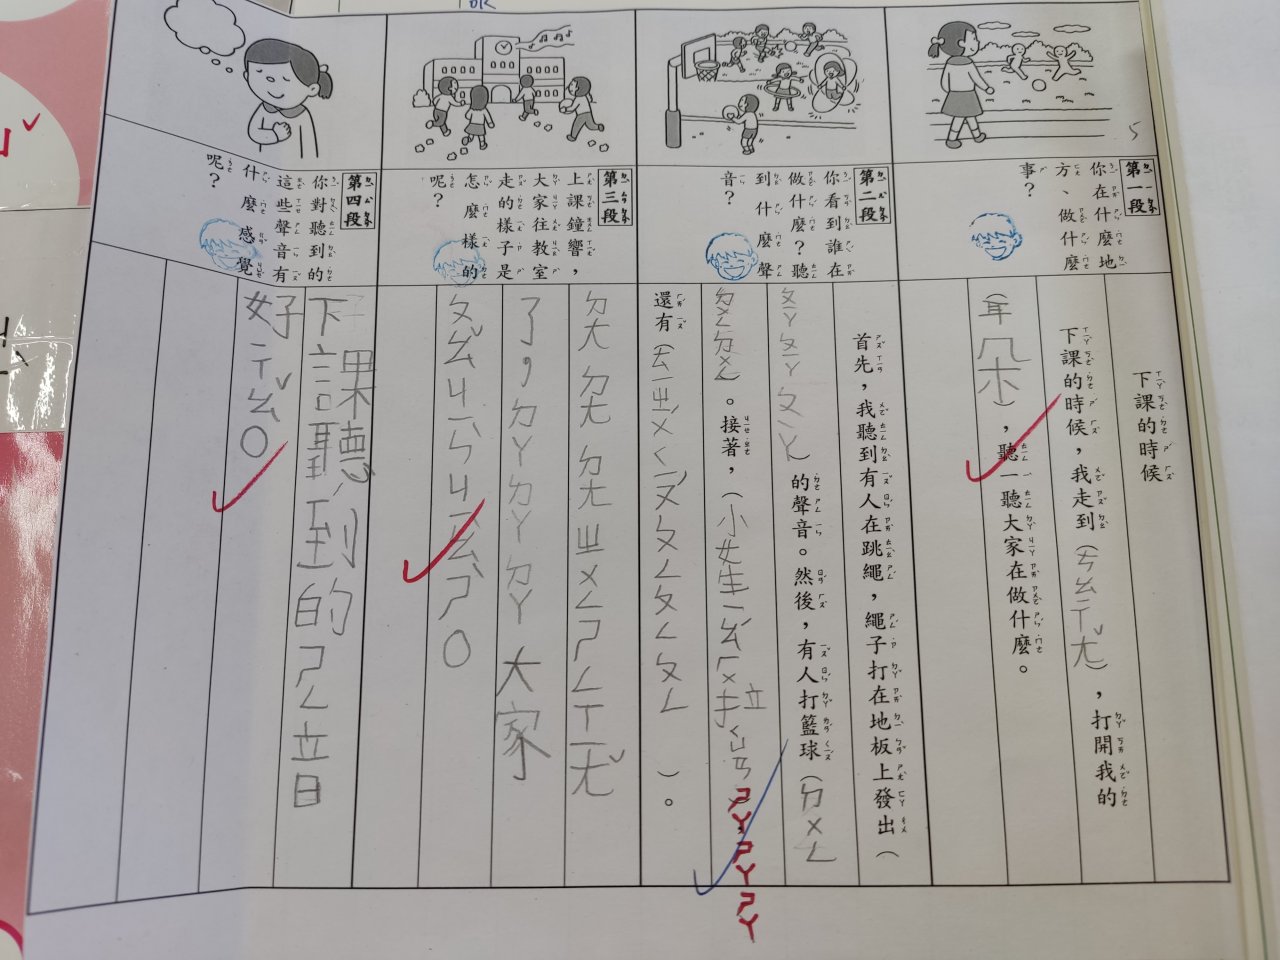 第一段
你在什麼地
方、做什麼
事？
第二段
你看到誰在
做什麼？聽
到什麼聲
音？
第三段
上課鐘響，
大家往教室
走的樣子是
怎麼樣的
呢？
第四段
你對聽到的
這些聲音有
什麼感覺
呢？
下課的時候
下課的時候，我走到（ㄘㄠㄒㄧㄤˇ），打開我的
（耳朵），聽一聽大家在做什麼。
首先，我聽到有人在跳繩，繩子打在地板上發出（
ㄆㄧㄚ ㄆㄧㄚ ㄆㄧㄚ）的聲音。然後，有人打籃球（ㄉㄨㄥ
ㄉㄨㄥㄉㄨㄥ）。接著，（小女生一ㄠˊㄏㄨ拉ㄑㄩㄢ
ㄕㄚㄕㄚㄕㄚ
還有（
ㄆㄥㄆㄥㄆㄥ）。
ㄉㄤ ㄉㄤ ㄉㄤ ㄓㄨㄥㄕㄥㄒㄧㄤˇ
了，ㄉㄚㄉㄚㄉㄚ大家
ㄆㄠˇㄐㄧㄣˋㄐㄧㄠˋㄕˋ。
下課聽到的ㄕㄥ音
好ㄒㄧㄠˇ。